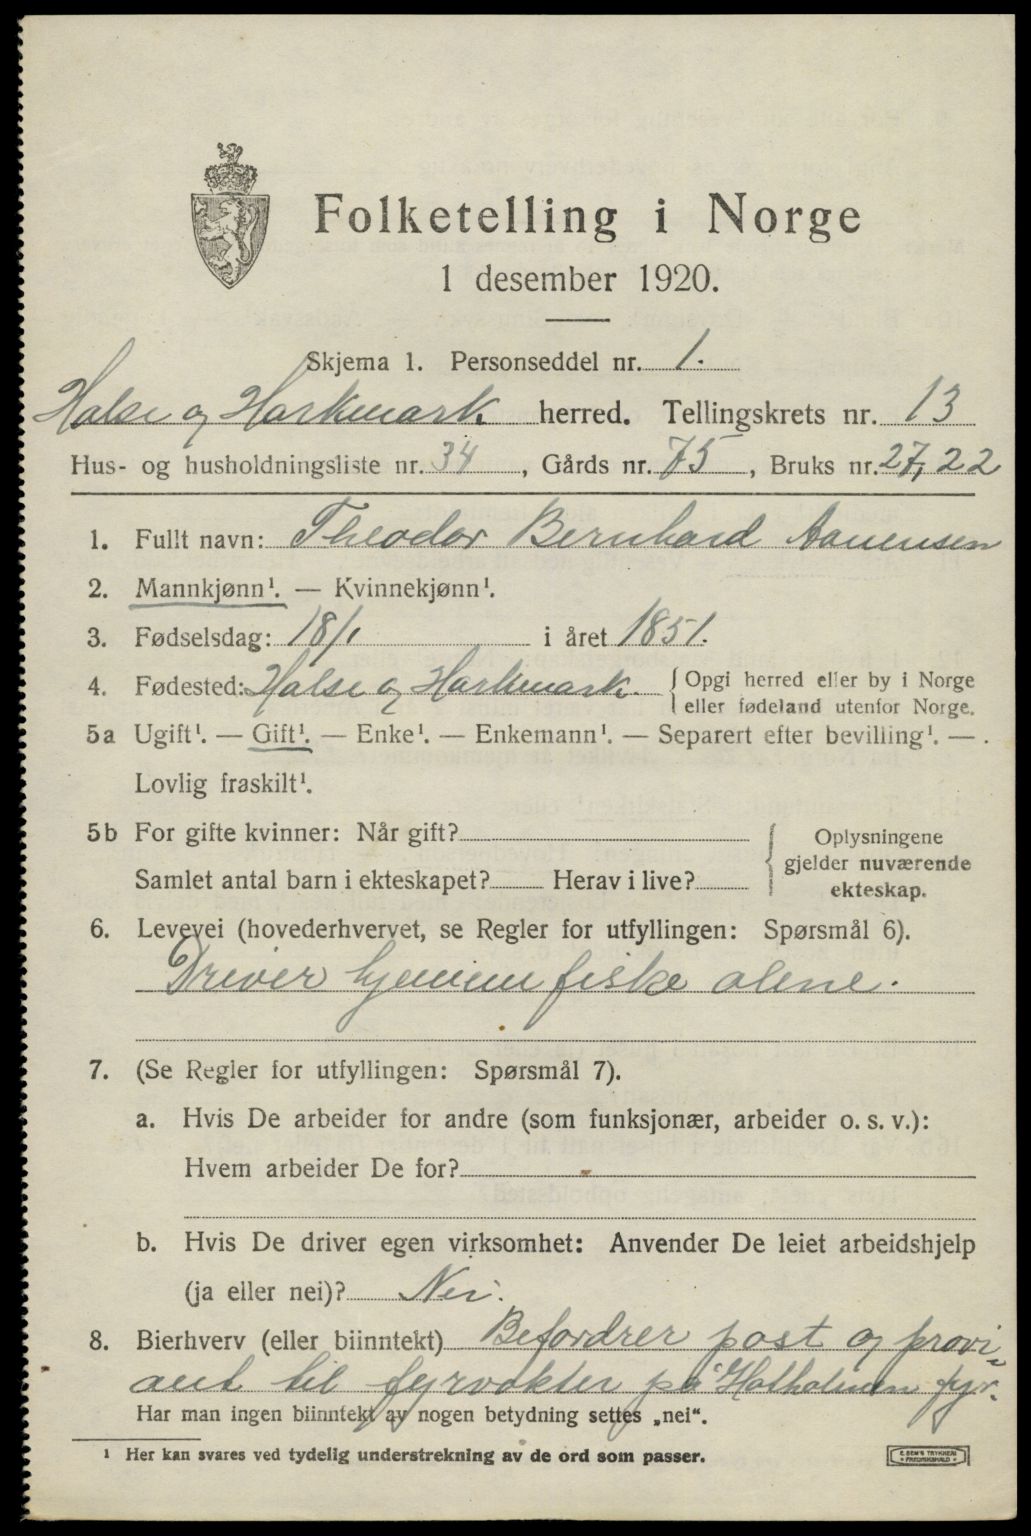 Folketelling i Norge
1 desember 1920.
Skjema 1. Personseddel nr. 1.
Halse og Harkmark herred. Tellingskrets nr. 13
Hus- og husholdningsliste nr. 34, Gårds nr. 75, Bruks nr. 27,22
1. Fullt navn: Theodor Bernhard Aanensen
2. Mannkjønn¹. — Kvinnekjønn¹.
3. Fødselsdag: 18/1 i året 1851.
4. Fødested: Halse og Harkmark. { Opgi herred eller by i Norge
eller fødeland utenfor Norge.
5a Ugift¹. — Gift¹. — Enke¹. — Enkemann¹. — Separert efter bevilling¹. —
Lovlig fraskilt¹.
5b For gifte kvinner: Når gift?
Samlet antal barn i ekteskapet? Herav i live?
Oplysningene
gjelder nuværende
ekteskap.
6. Levevei (hovederhvervet, se Regler for utfyllingen: Spørsmål 6).
Driver hjemmefiske alene.
7. (Se Regler for utfyllingen: Spørsmål 7).
a. Hvis De arbeider for andre (som funksjonær, arbeider o. s. v.):
Hvem arbeider De for?
b. Hvis De driver egen virksomhet: Anvender De leiet arbeidshjelp
(ja eller nei)? Nei.
8. Bierhverv (eller biinntekt) Befordrer post og provi=
ant til fyrvokter på Hatholmen fyr.
Har man ingen biinntekt av nogen betydning settes „nei“.
¹ Her kan svares ved tydelig understrekning av de ord som passer.
E. SEM'S TRYKKERI
FREDRIKSHALD